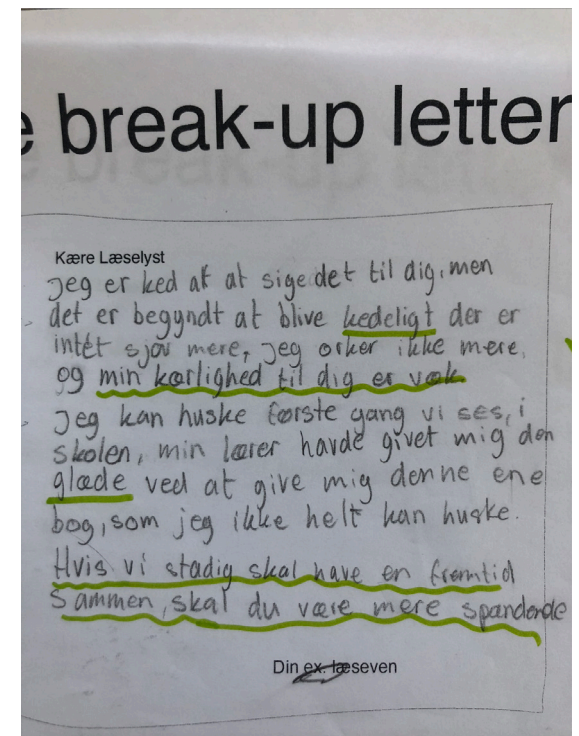 e break-up letter
Kære Læselyst
Jeg er ked af at sige det til dig, men
det er begyndt at blive kedeligt der er
intet sjov mere, jeg orker ikke mere,
og min kærlighed til dig er væk
Jeg kan huske første gang vi ses, i
skolen, min lærer havde givet mig den
glæde ved at give mig denne ene
bog, som jeg ikke helt kan huske.
Hvis vi stadig skal have en fremtid
sammen, skal du være mere spændende
Din ex. læseven